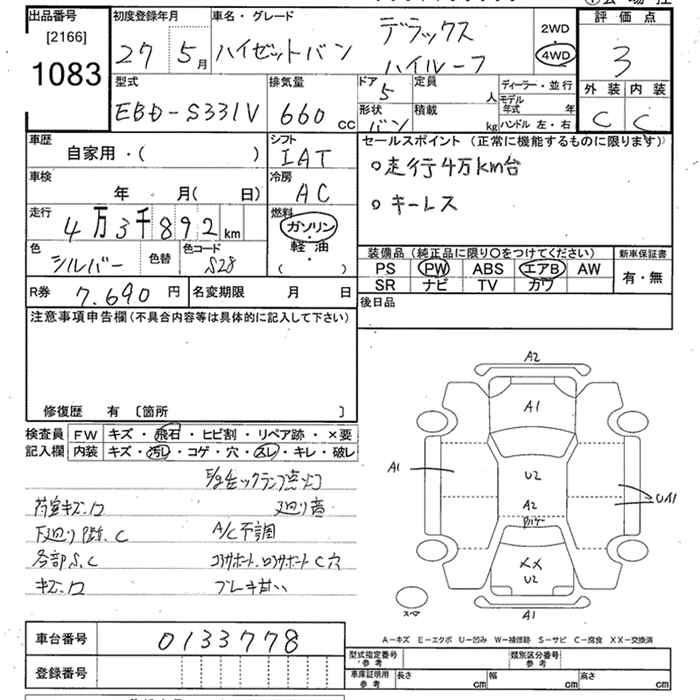 出品番号
[2166]
1083
初度登録年月
27 5月
車名・グレード
ハイゼットバン
デラックス
ハイルーフ
2WD
4WD
評価点
3
外装 内装
C C
型式
EBD-S331V
排気量
660 cc
ドア 5
定員 人
形状 バン
積載 kg
ディーラー・並行
モデル年式 年
ハンドル 左・右
車歴
自家用・( )
シフト
IAT
車検
年 月( 日)
冷房
AC
走行
4万3千892km
燃料
ガソリン
軽油
( )
色
シルバー
色替
色コード
S28
セールスポイント(正常に機能するものに限ります)
○走行4万km台
○キーレス
装備品(純品に限り○をつけてください)
新車保証書
PS PW ABS エアB AW
SR ナビ TV カワ
有・無
R券 7.690円
名変期限 月 日
後日品
注意事項申告欄(不具合内容等は具体的に記入して下さい)
修復歴 有 [箇所 ]
検査員記入欄
FW キズ・飛石・ヒビ割・リペア跡・×要
内装 キズ・汚レ・コゲ・穴・スレ・キレ・破レ
荷室キズ.ワ
下廻リ C
A/C不調
各部S.C
C穴
キズ.ワ
ブレーキ甘い
A2
A1
A1
U2
A2
UA1
XX
U2
A1
スペア
A-キズ E-エクボ U-凹み W-補修跡 S-サビ C-腐食 XX-交換済
車台番号
0133778
登録番号
型式指定番号 参考
類別区分番号 参考
車庫証明用 参考
長さ cm
幅 cm
高さ cm